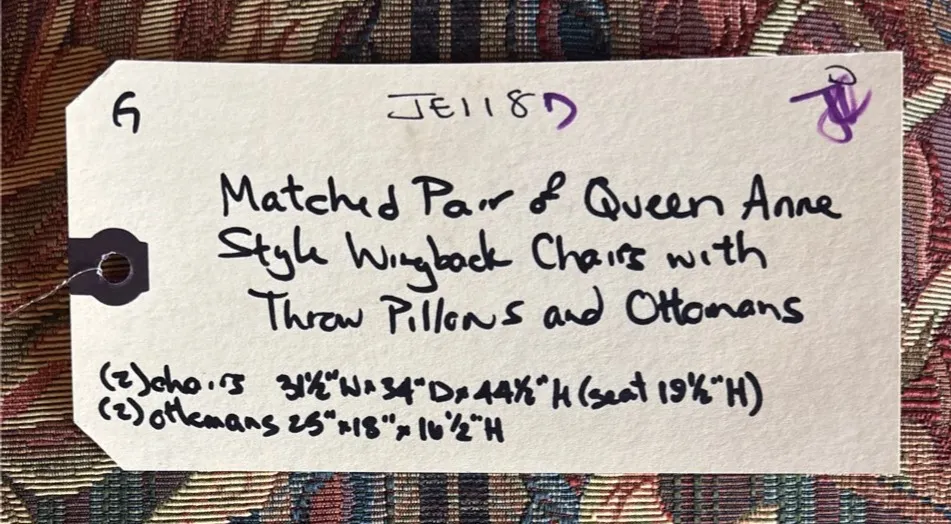 G
JE118D
Matched Pair of Queen Anne
Style Wingback Chairs with
Throw Pillows and Ottomans
(2) chairs 31½" W x 34" D x 44½" H (seat 19½" H)
(2) ottomans 25" x 18" x 16½" H